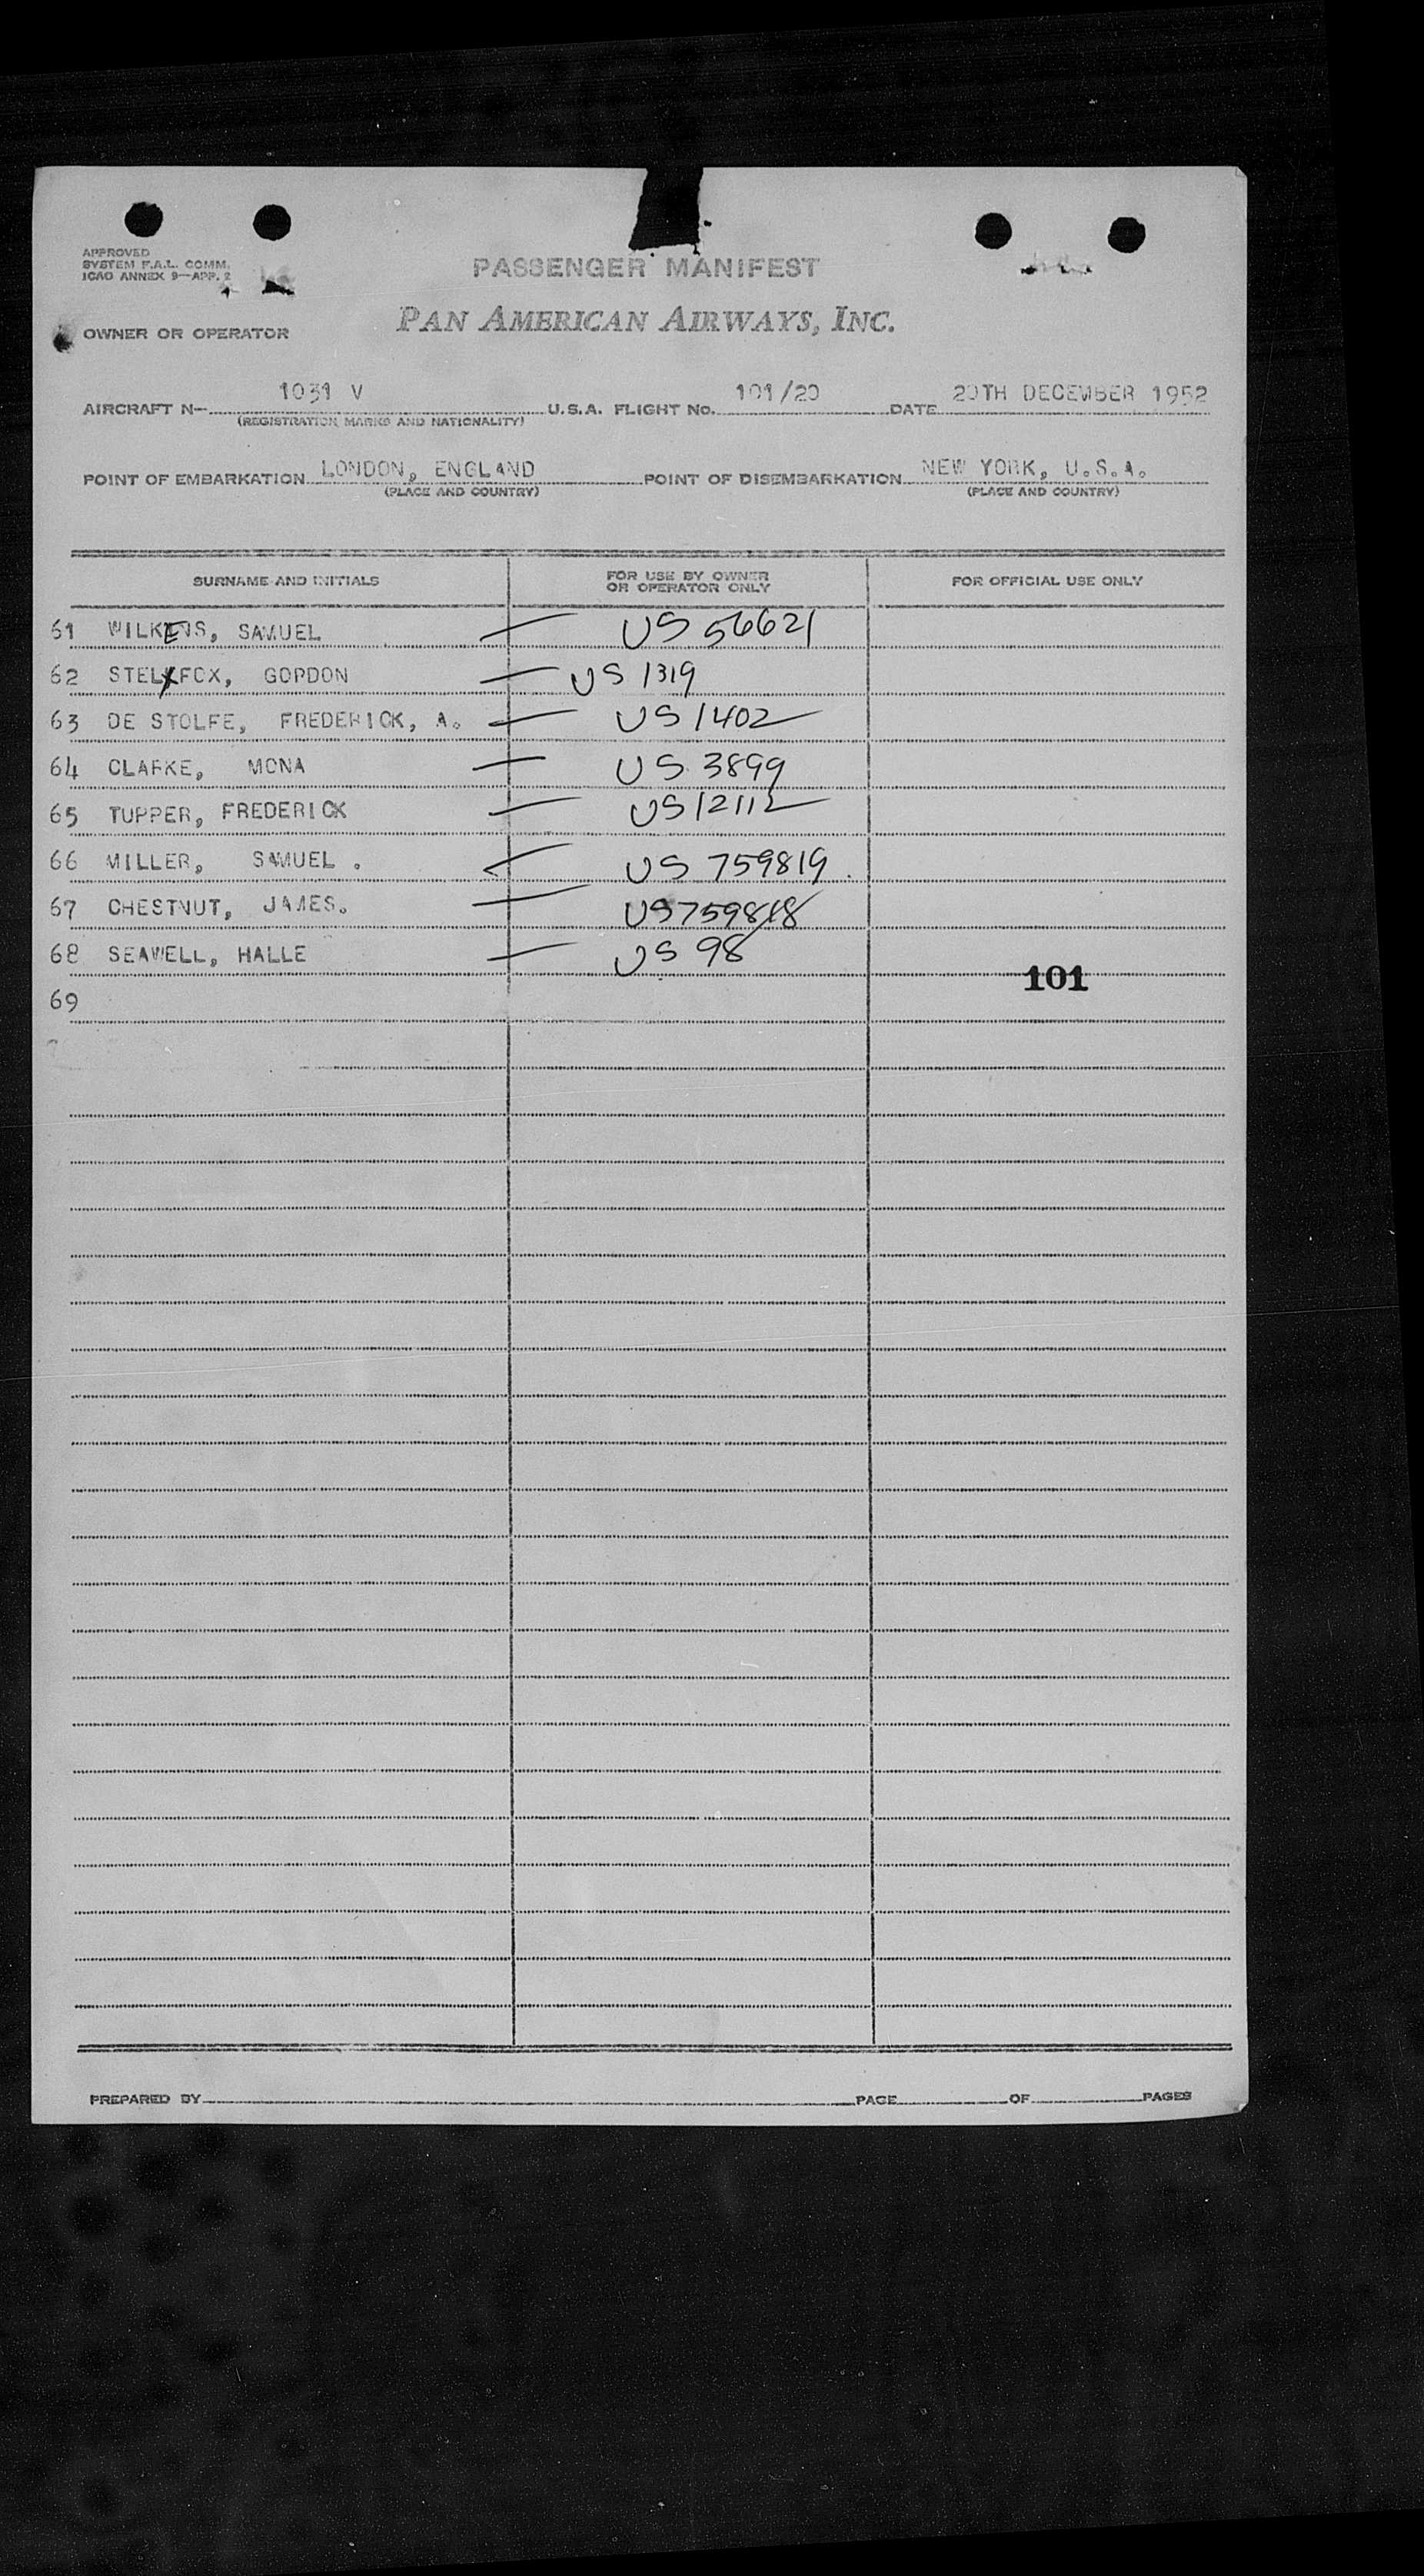 APPROVED
SYSTEM F.A.L. COMM.
ICAO ANNEX 9—APP. 2
PASSENGER MANIFEST
OWNER OR OPERATOR PAN AMERICAN AIRWAYS, INC.
AIRCRAFT N— 1031 V U.S.A. FLIGHT No. 101/20 DATE 20TH DECEMBER 1952
(REGISTRATION MARKS AND NATIONALITY)
POINT OF EMBARKATION LONDON, ENGLAND POINT OF DISEMBARKATION NEW YORK, U.S.A.
(PLACE AND COUNTRY) (PLACE AND COUNTRY)
SURNAME AND INITIALS FOR USE BY OWNER OR OPERATOR ONLY FOR OFFICIAL USE ONLY
61 WILKENS, SAMUEL — US 56621
62 STELFOX, GORDON — US 1319
63 DE STOLFE, FREDERICK, A. — US 1402
64 CLARKE, MONA — US 3899
65 TUPPER, FREDERICK — US 12112
66 MILLER, SAMUEL . US 759819
67 CHESTNUT, JAMES. — US 759818
68 SEAWELL, HALLE — US 98
101
69
PREPARED BY PAGE OF PAGES